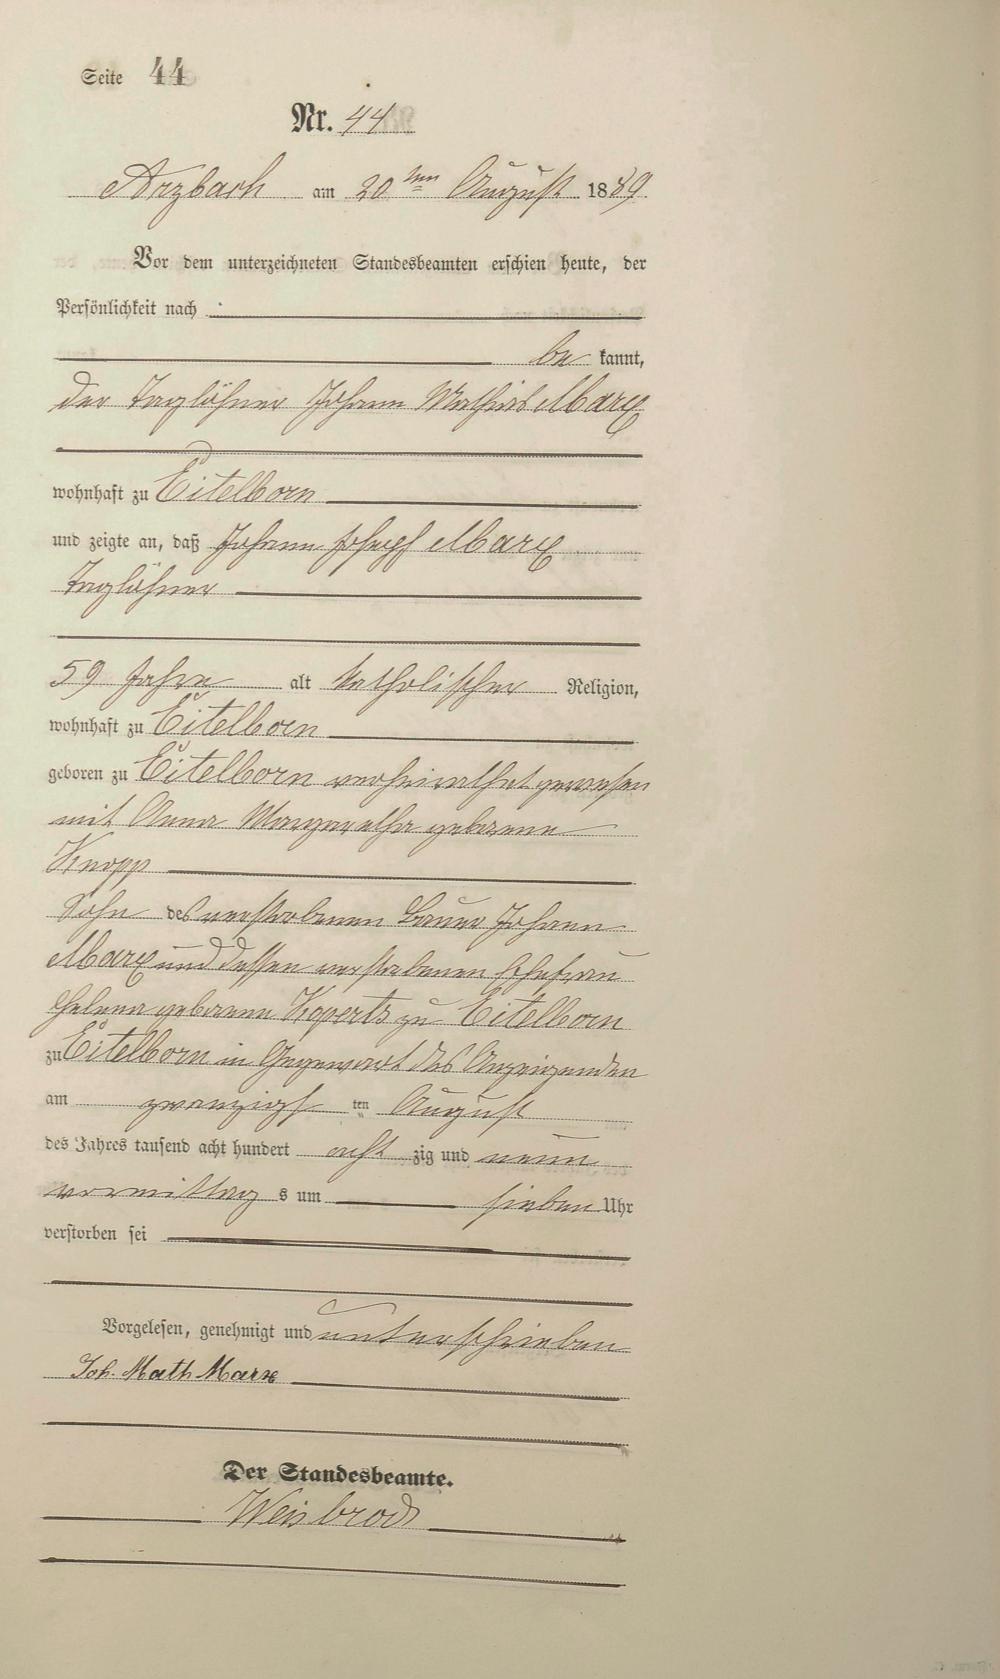 Seite 44
Nr. 44
Arzbach am 20ten August 1889
Vor dem unterzeichneten Standesbeamten erschien heute, der
Persönlichkeit nach
be kannt,
der Taglöhner Johann Mathias Marx
wohnhaft zu Eitelborn
und zeigte an, daß Johann Joseph Marx
Taglöhner
59 Jahre alt katholischer Religion,
wohnhaft zu Eitelborn
geboren zu Eitelborn verheirathet gewesen
mit Anna Margaretha geborene
Knopp
Sohn des verstorbenen Bauer Johann
Marx und dessen verstorbenen Ehefrau
Helena geborene Kaperts zu Eitelborn
zu Eitelborn in Gegenwart des Anzeigenden
am zwanzigs ten August
des Jahres tausend acht hundert acht zig und neun
vormittag s um sieben Uhr
verstorben sei
Vorgelesen, genehmigt und unterschrieben
Joh. Math Marx
Der Standesbeamte.
Weisbrod